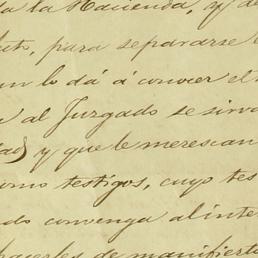 la Hacienda, y de
para separarse
lo dá á conocer el
al Juzgado se sirva
y que le merescan
como testigos, cuyo tes
do convenga al inte
hacerles de manifiesto